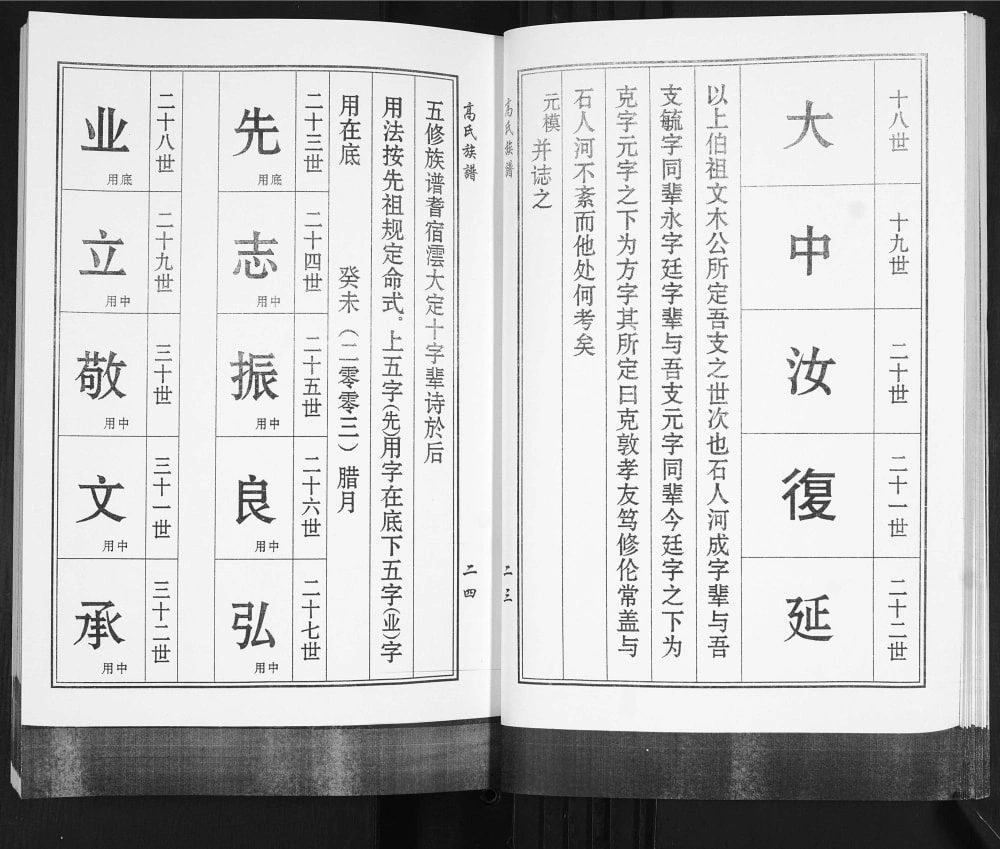 十八世
大
十九世
中
二十世
汝
二十一世
復
二十二世
延
以上伯祖文木公所定吾支之世次也石人河成字辈与吾
支毓字同辈永字廷字辈与吾支元字同辈今廷字之下为
克字元字之下为方字其所定曰克敦孝友笃修伦常盖与
石人河不紊而他处何考矣
元模 并誌之
高氏族譜
二三
高氏族譜
二四
五修族谱耆宿澐大定十字辈诗於后
用法按先祖规定命式。上五字(先)用字在底下五字(业)字
用在底 癸未(二零零三)腊月
二十三世
先
用底
二十四世
志
用中
二十五世
振
用中
二十六世
良
用中
二十七世
弘
用中
二十八世
业
用底
二十九世
立
用中
三十世
敬
用中
三十一世
文
用中
三十二世
承
用中